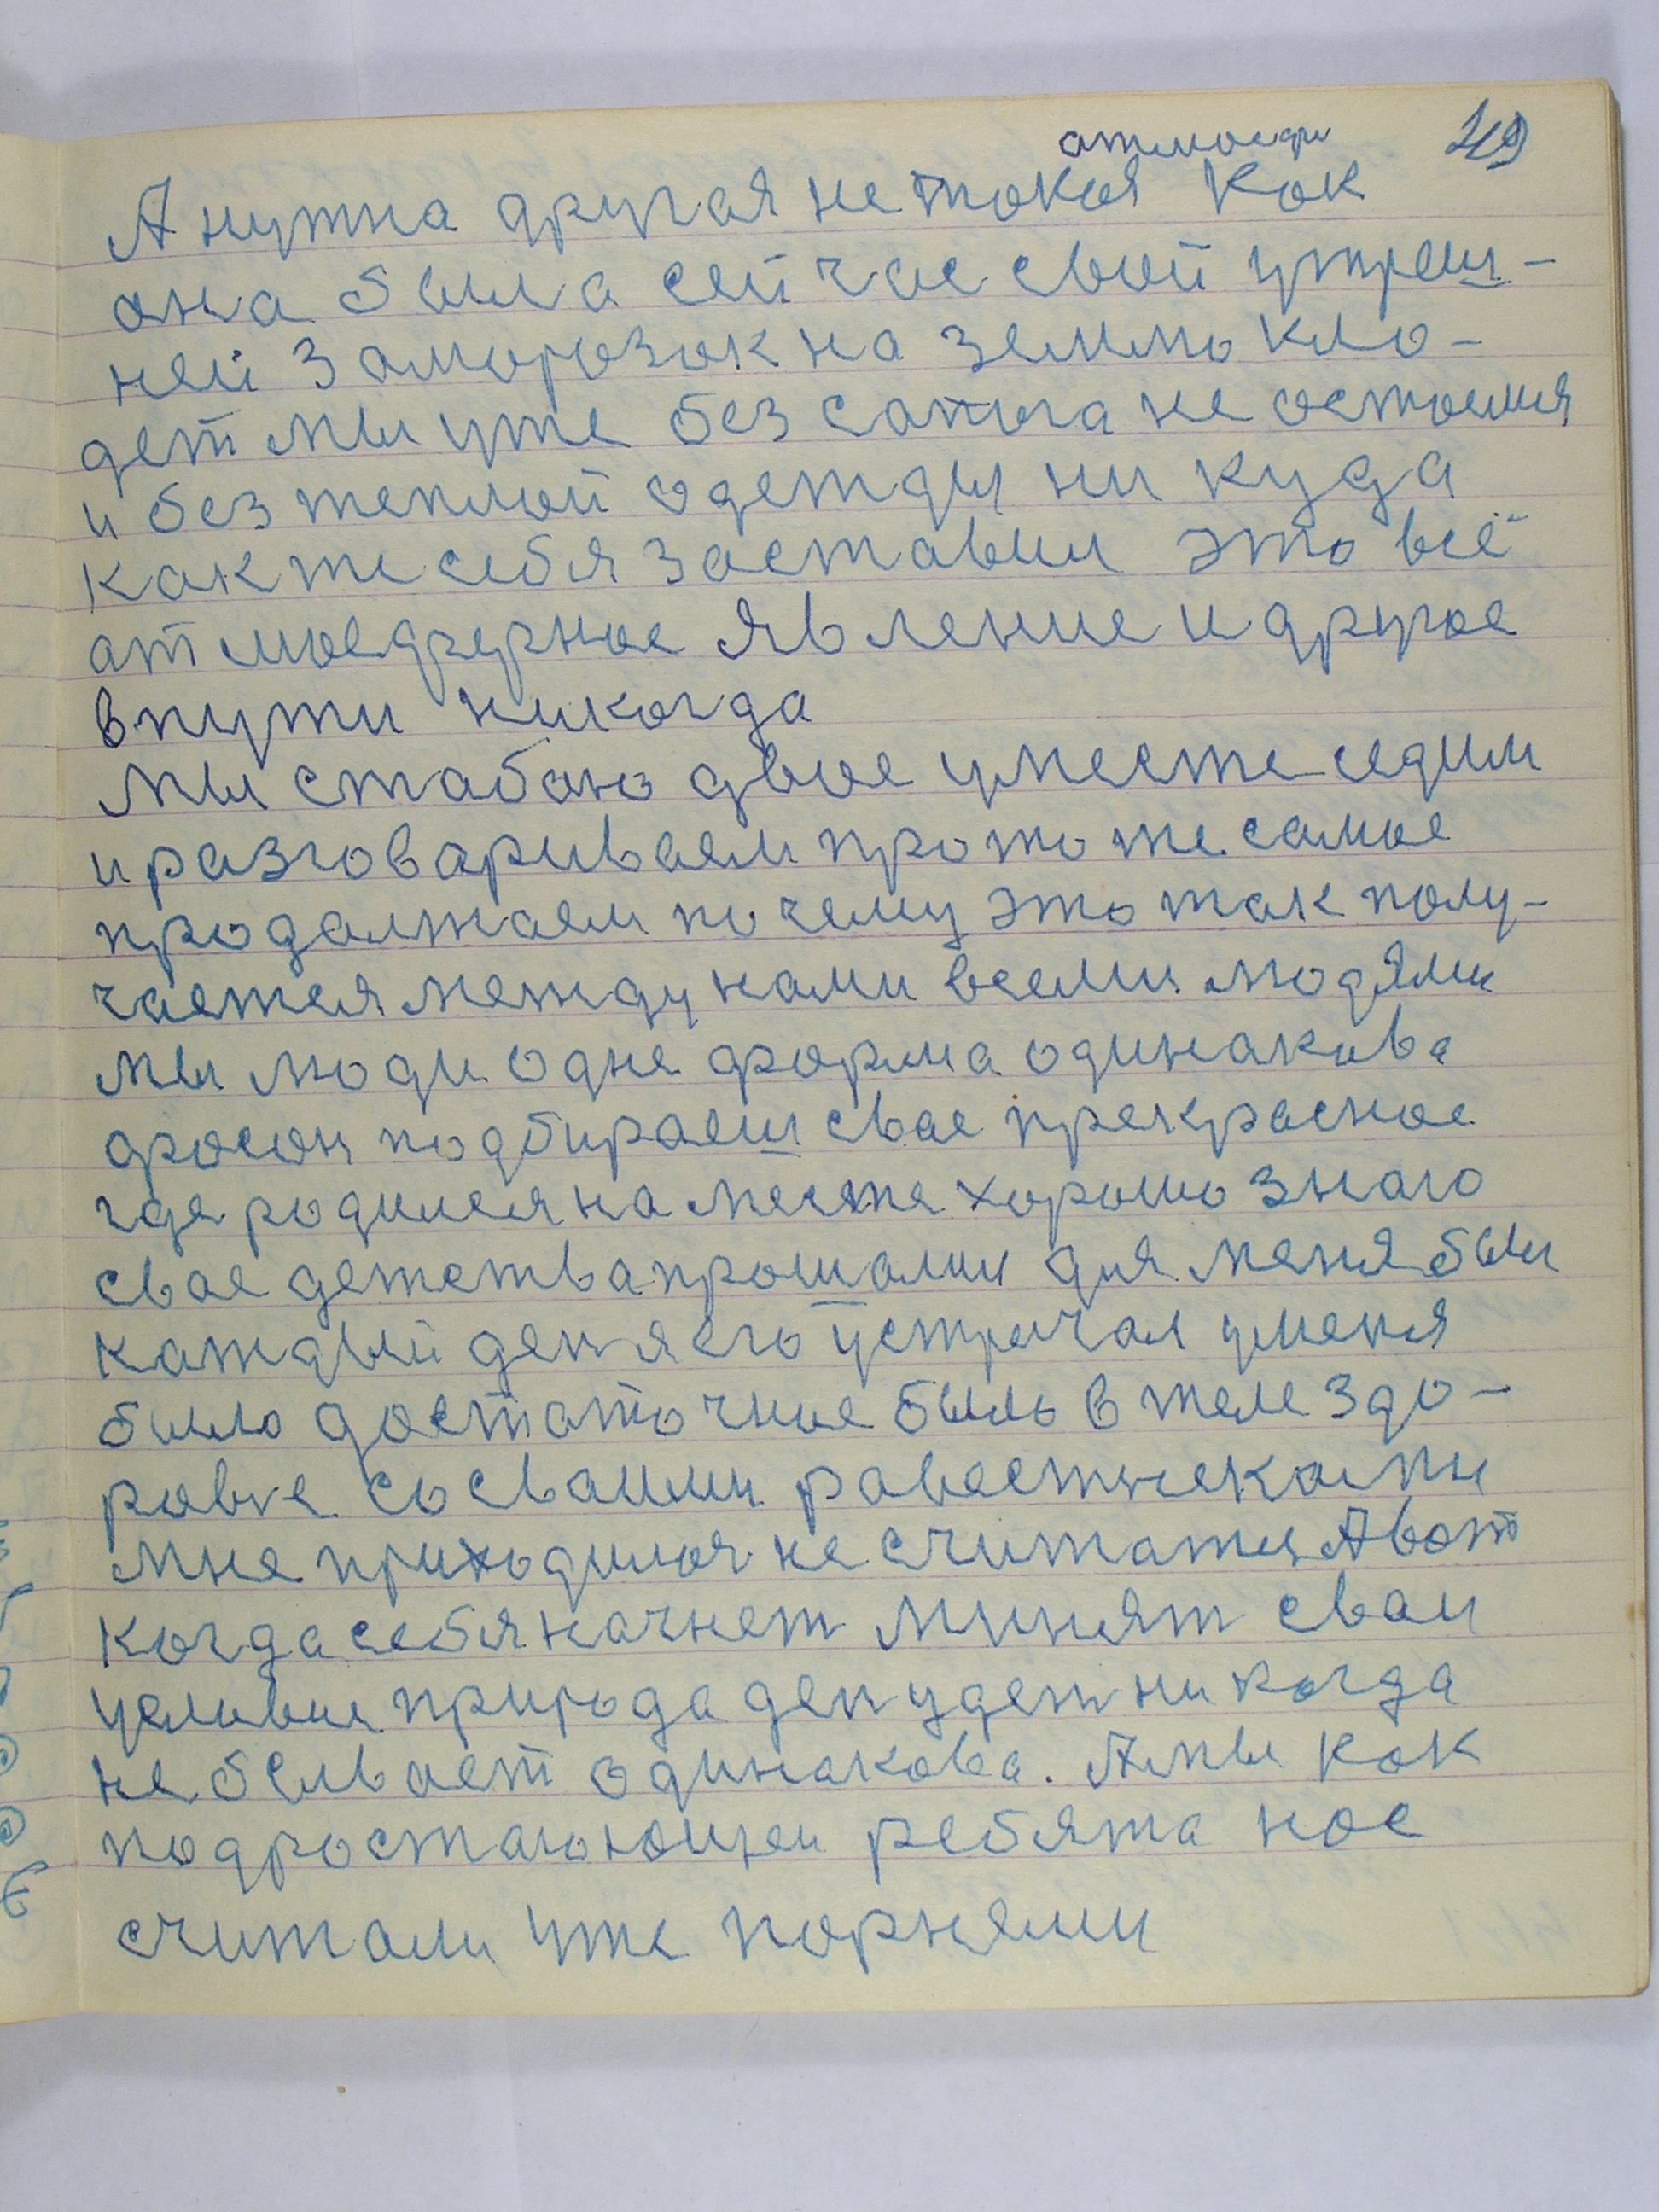 49
атмосфе
А нужна другая не токая как
она была сей час свой утреш-
ней заморозок на землю кло-
дет мы уже без сапога не остоемся
и без теплой одежды ни куда
как же себя заставиш это всё
атмосферное явление и другое
в пути никогда
Мы стабою двое уместе седим
и разговариваем про то же самое
продалжаем почему это так полу-
чается между нами всеми людями
мы люди одне форма одинакова
фосон подбираеш свае прекрасное
где родился на месте хорошо знаю
свае детства прошалии для меня был
каждый ден я его устричал уменя
было достаточное быль в теле здо-
ровие со сваими равестнеками
мне приходилоя не считатся А вот
когда себя начнет минят сваи
условие природа ден удет ни когда
не бывает одинакова. А мы как
подростаюющеи ребята нос
считали уже порнями